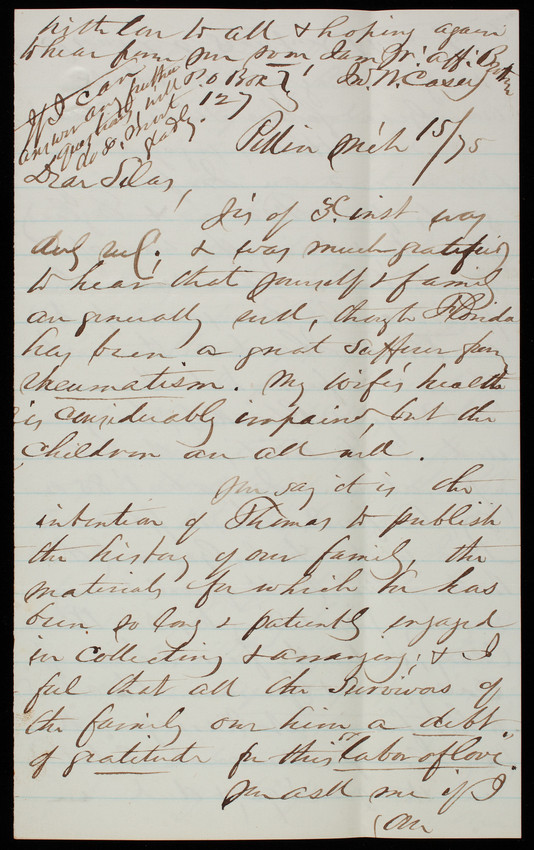 with love to all & hoping again
to hear from you soon I am yr: aff: Brother
P. O Box
127
W. Casey
If I can
answer any further
questions will
do so. most
gladly.
Pekin Mch 15/75
Dear Silas,
Yrs of inst was
duly recd. & was much gratified
to hear that yourself & family
are generally well, though Florida
has been a great sufferer from
rheumatism. My wife's health
is considerably impaired, but the
children are all well.
You say it is the
intention of Thomas to publish
the history of our family, the
materials for which he has
been so long & patiently engaged
in collecting & arranging; & I
feel that all the survivors of
the family owe him a debt
of gratitude for this "labor of love."
You ask me if I
can